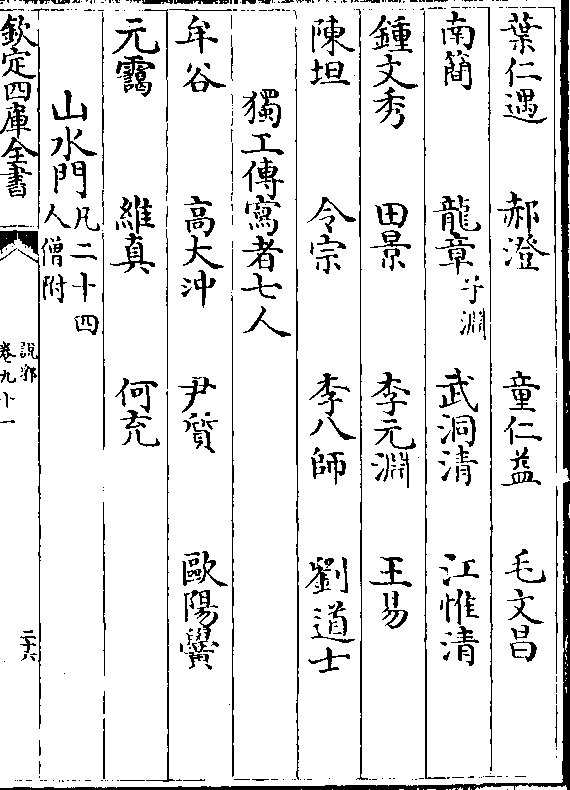 葉仁遇 郝澄 童仁益 毛文昌
南簡 龍章 子淵 武洞清 江惟清
鍾文秀 田景 李元淵 王易
陳坦 令宗 李八師 劉道士
獨工傳寫者七人
牟谷 高大沖 尹質 歐陽黌
元靄 維真 何充
山水門 凡二十四人僧附
欽定四庫全書
說郛
卷九十一
二十六